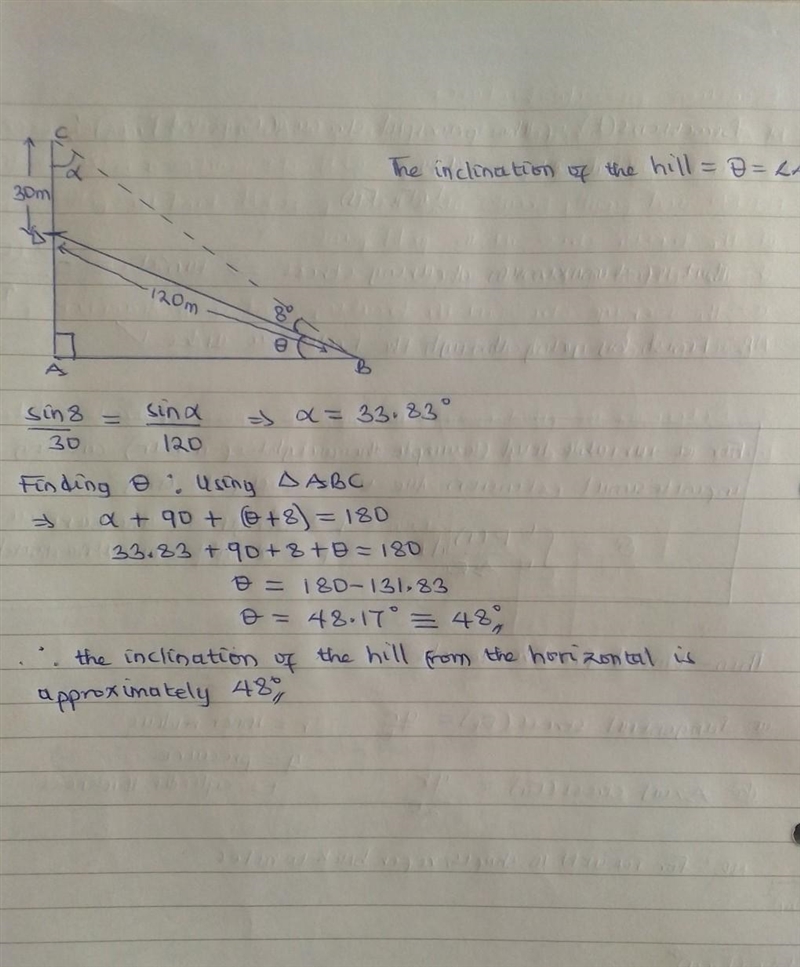 C
α
30m
The inclination of the hill = θ = ∠
D
120m
8°
θ
A
B
sin8/30 = sinα/120 ⇒ α = 33.83°
Finding θ : Using Δ ABC
⇒ α + 90 + (θ+8) = 180
33.83 + 90 + 8 + θ = 180
θ = 180 - 131.83
θ = 48.17° ≡ 48°,,
∴ the inclination of the hill from the horizontal is
approximately 48°,,